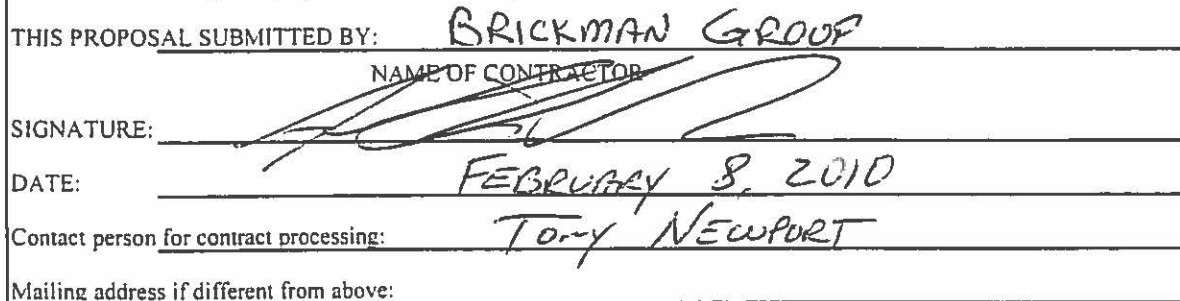 THIS PROPOSAL SUBMITTED BY: BRICKMAN GROUP
NAME OF CONTRACTOR
SIGNATURE:
DATE: FEBRUARY 8, 2010
Contact person for contract processing: TONY NEWPORT
Mailing address if different from above: